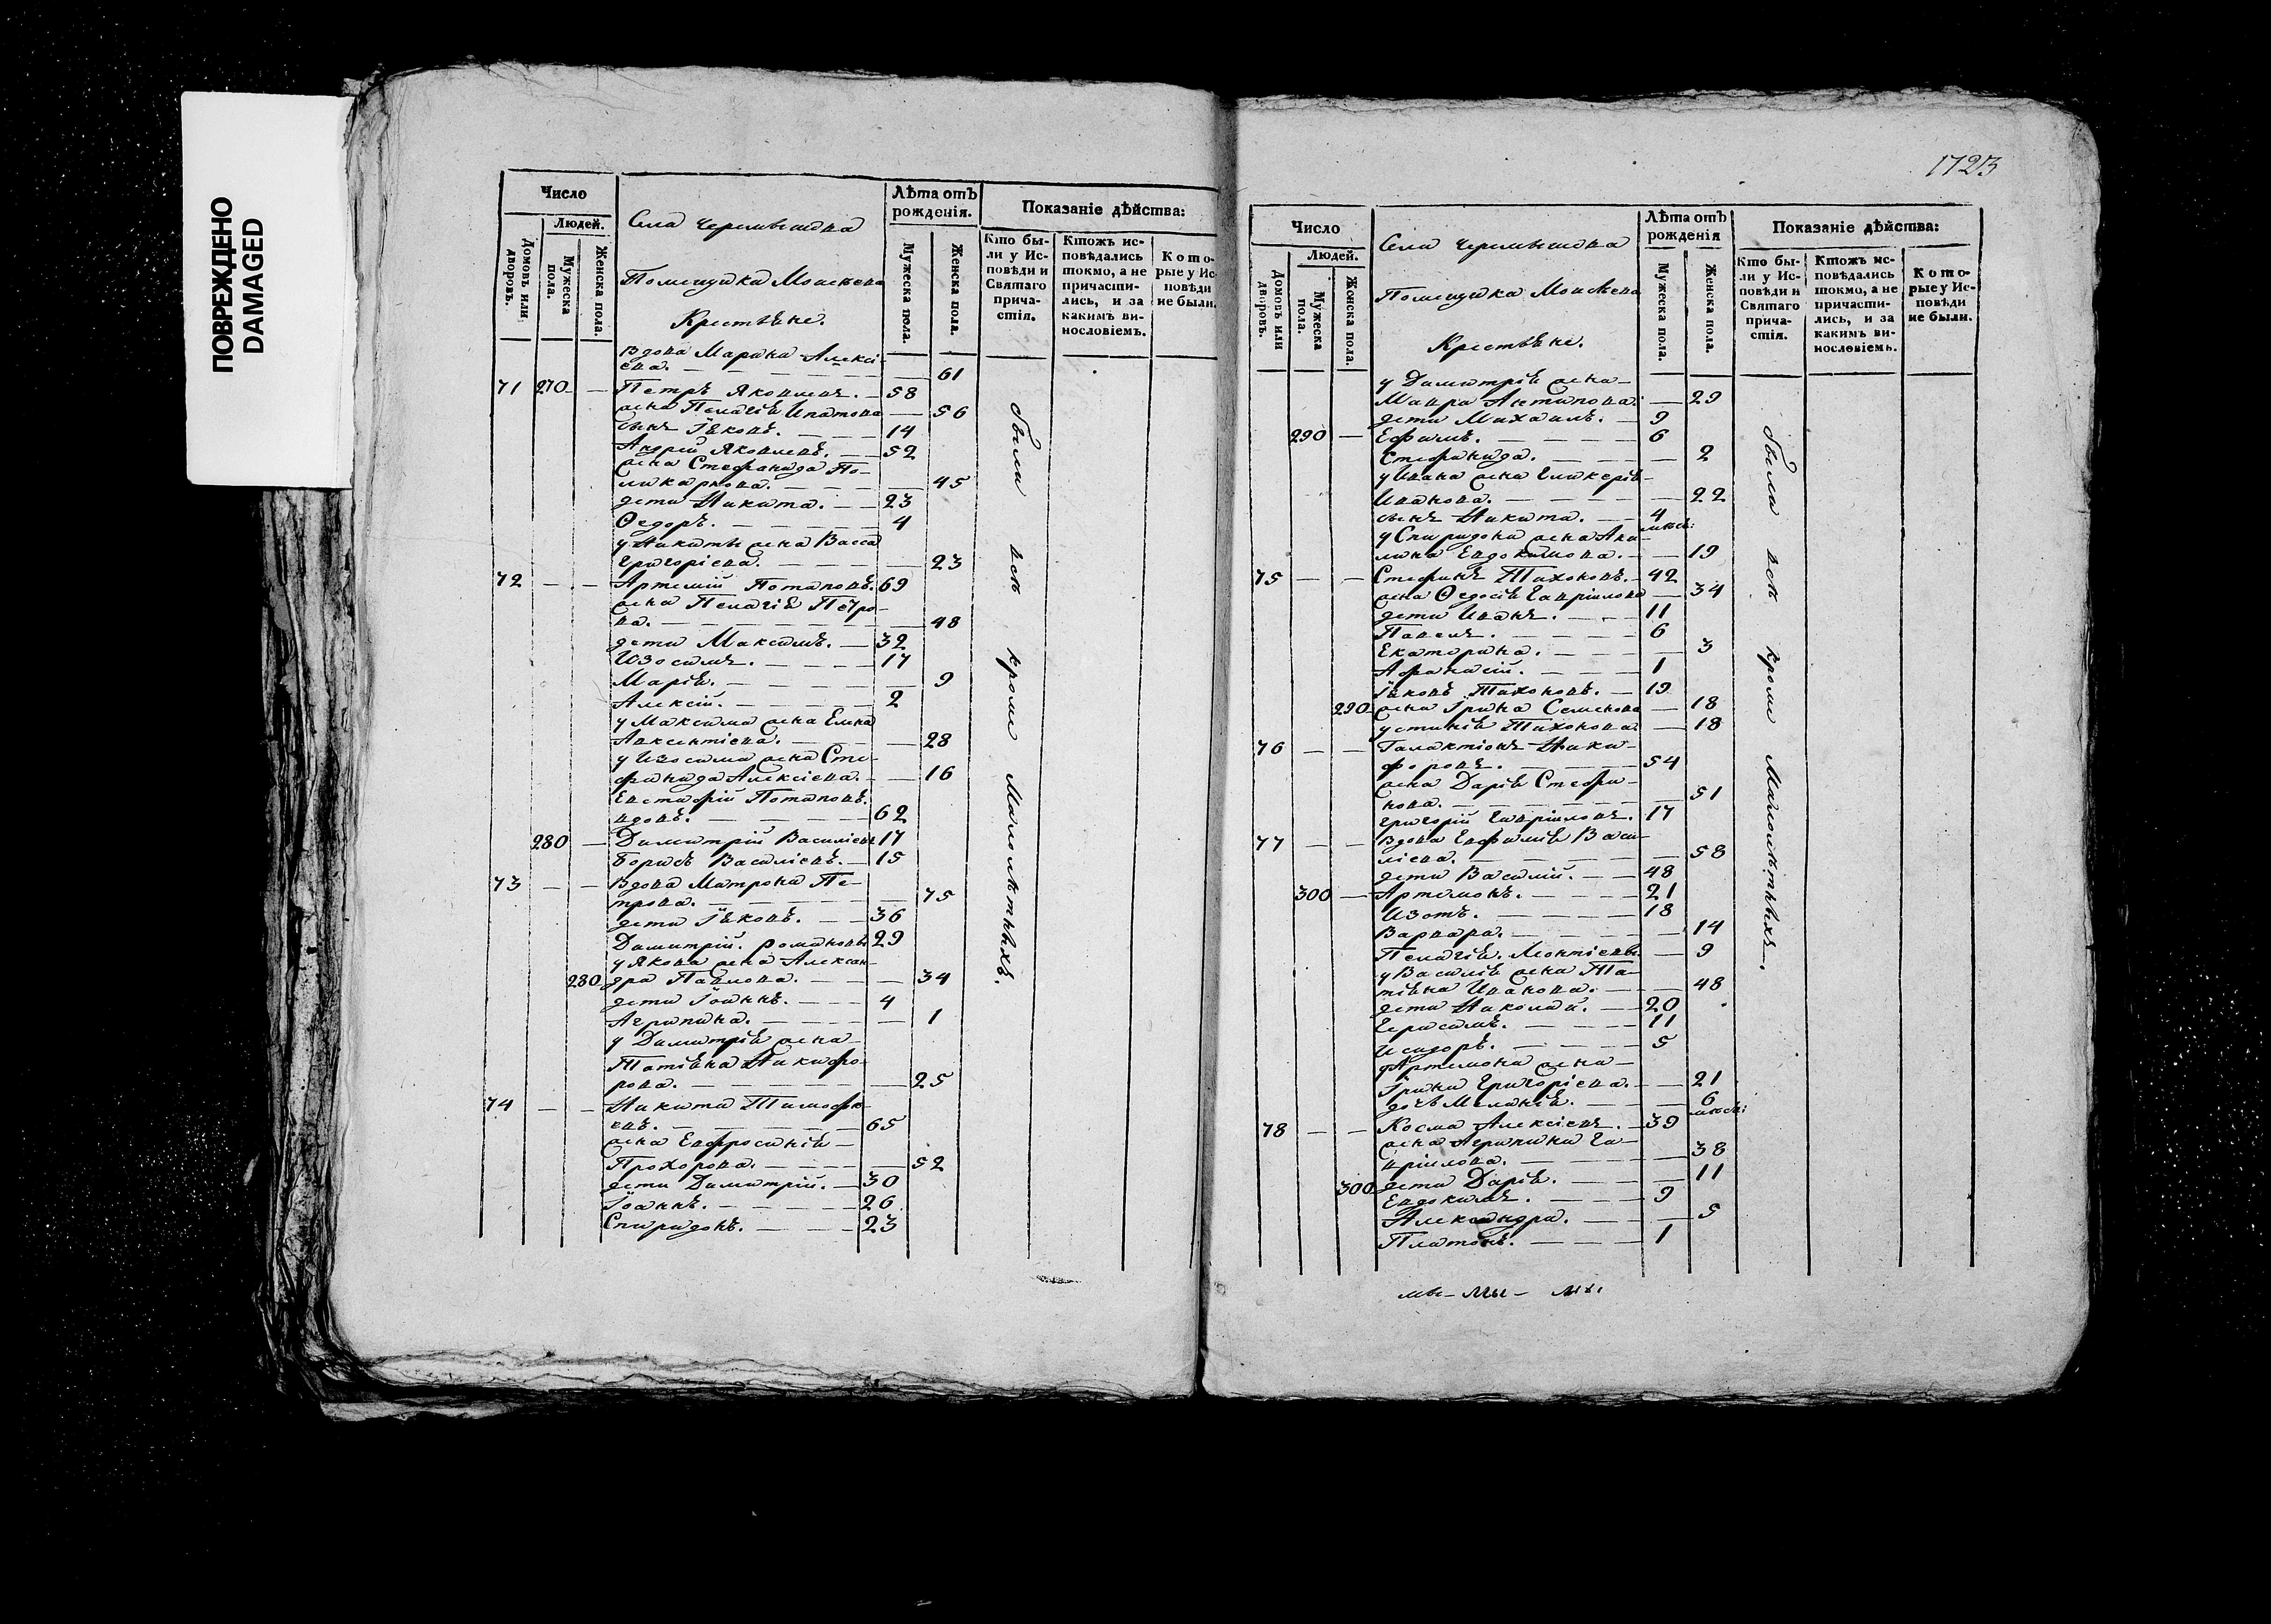 ПОВРЕЖДЕНО
DAMAGED
Число
Людей.
Домовъ или дворовъ.
Мужеска пола.
Женска пола.
Села Черемышева
Помещика Моисеева
Крестьяне.
Лѣта отъ рожденія.
Мужеска пола.
Женска пола.
Показаніе дѣйства:
Кто бы-
ли у Ис-
повѣди и
Святаго
прича-
стія.
Ктожъ ис-
повѣдались
токмо, а не
причасти-
лись, и за
какимъ ви-
нословіемъ.
Кото-
рые у Ис-
повѣди
не были.
вдова Марина Алексі-
ева. — 61
71 270 — Петръ Яковлевъ. — 58
жена Пелагія Ипатова — 56
сынъ Іаковъ. — 14
Андрей Яковлевъ. — 52
жена Стефанида По-
ликарпова. — 45
дети Никита. — 23
Ѳедоръ. — 4
у Никиты жена Васса
Григоріева. — 23
72 — — Артемій Потаповъ. 69
жена Пелагія Петро-
ва. — 48
дети Максимъ. — 32
Изосимъ. — 17
Марія. — 9
Алексій. — 2
у Максима жена Елена
Авксентіева. — 28
у Изосима жена Сте-
фанида Алексіева. — 16
Евстафій Потаповъ.
вдовъ. — 62
280 — Димитрій Василіевъ 17
Борисъ Василіевъ. — 15
73 — — Вдова Матрона Пе-
трова. — 75
дети Іаковъ. — 36
Димитрій. Романовы 29
у Якова жена Алексан-
280 дра Павлова. — 34
дети Іоаннъ. — 4
Агрипина. — 1
у Димитрія жена
Татіана Никифо-
рова. — 25
74 — — Никита Тимофе-
евъ. — 65
жена Евфросинія
Прохорова. — 52
дети Димитрій. — 30
Іоаннъ. — 26
Спиридонъ. — 23
были все кроме малолѣтнѣхъ.
1723
Число
Людей.
Домовъ или дворовъ.
Мужеска пола.
Женска пола.
Села Черемышева
Помещика Моисеева
Крестьяне.
Лѣта отъ рожденія
Мужеска пола.
Женска пола.
Показаніе дѣйства:
Кто бы-
ли у Ис-
повѣди и
Святаго
прича-
стія.
Ктожъ ис-
повѣдались
токмо, а не
причасти-
лись, и за
какимъ ви-
нословіемъ.
Кото-
рые у Ис-
повѣди
не были.
у Димитрія жена
Мавра Антипова. — 29
дети Михаилъ. — 9
290 — Ефимъ. — 6
Стефанида. — 2
у Ивана жена Гликерія
Иванова. — 22
сынъ Никита. — 4 месе:
у Спиридона жена Аки-
лина Евдокимова. — 19
75 — — Стефанъ Тихоновъ. — 42
жена Ѳедосія Гавріилова — 34
дети Иванъ. — 11
Павелъ. — 6
Екатерина. — 3
Афанасій. — 1
Іаковъ Тихоновъ. — 19
290 жена Ірина Семенова — 18
Устинія Тихонова — 18
76 — — Галактіонъ Ники-
форовъ. — 54
жена Дарія Стефа-
нова. — 51
Григорій Гавріиловъ. 17
77 — — Вдова Евфимія Васи-
ліева. — 58
дети Василій. — 48
300 — Артемонъ. — 21
Изотъ. — 18
Варвара. — 14
Пелагія. Леонтіевы — 9
у Василія жена Та-
тіана Иванова. — 48
дети Николай. — 20
Герасимъ. — 11
Исидоръ. — 5
у Артемона жена
Ірина Григоріева. — 21
дочь Меланія. — 6 месе:
78 — — Косма Алексіевъ. — 39
жена Агрипина Га-
вріилова. — 38
300 дети Дарія. — 11
Евдокимъ. — 9
Александра. — 5
Платонъ. — 1
были все кроме малолѣтнѣхъ.